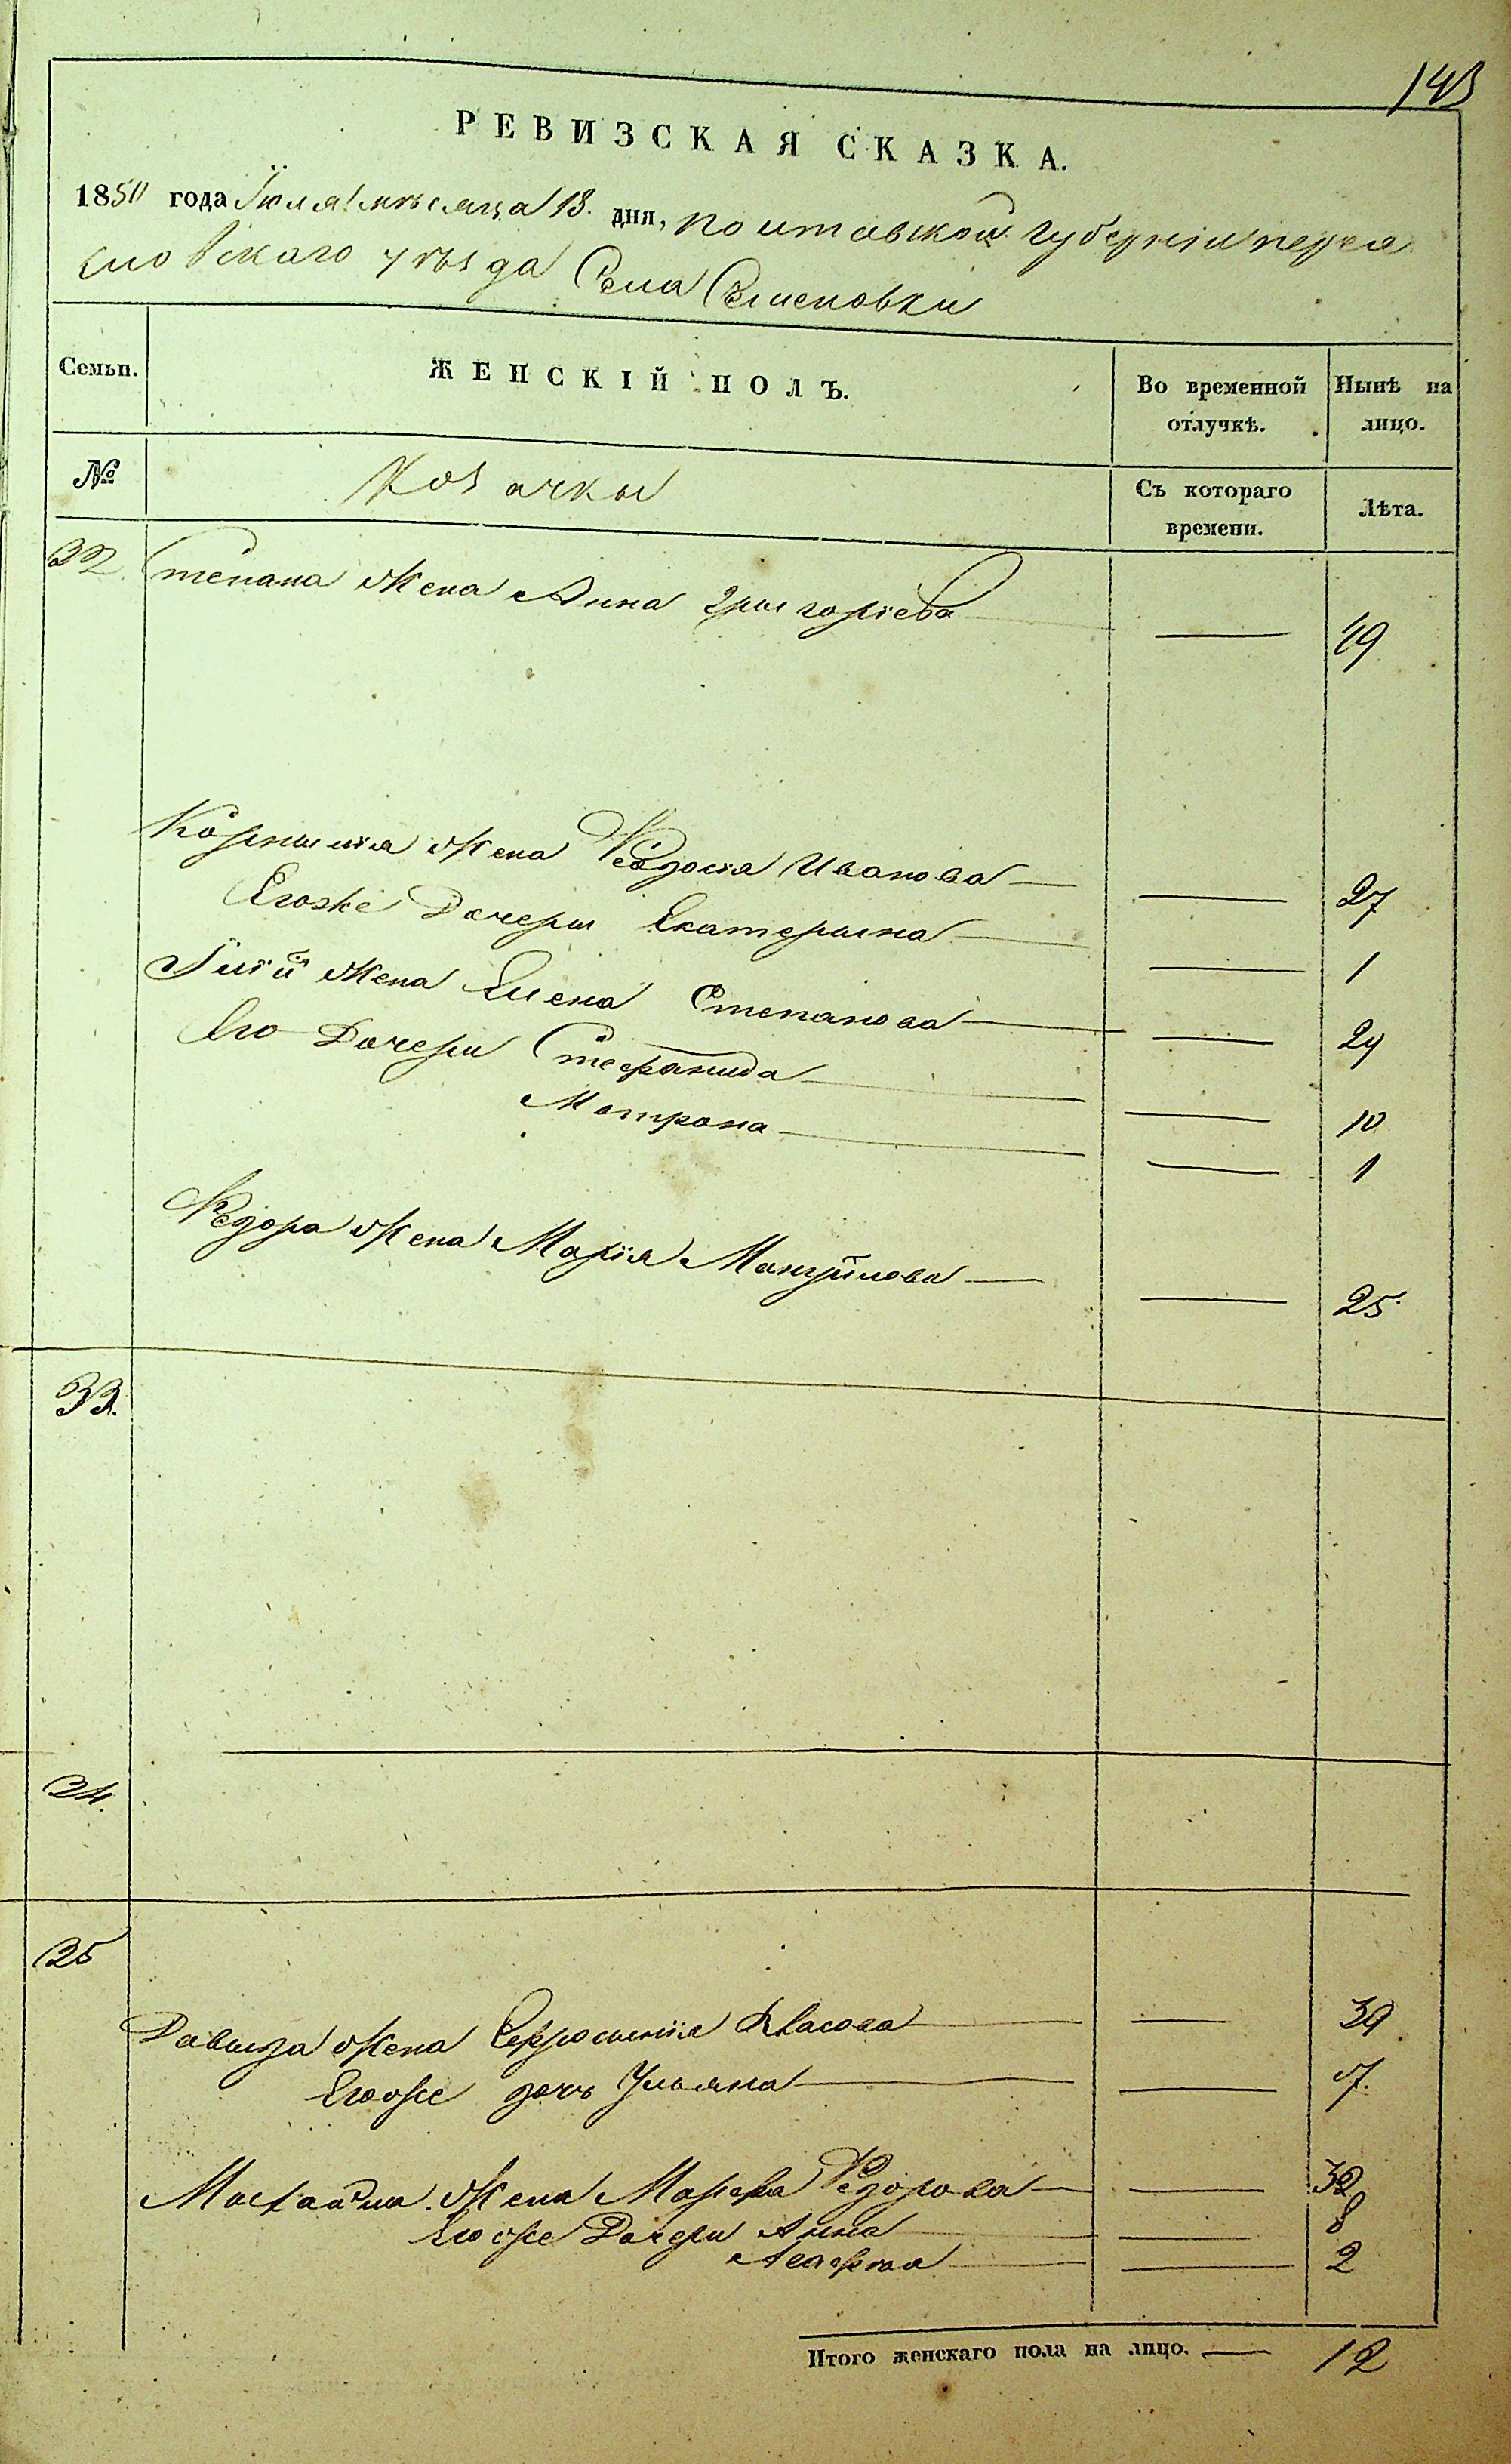 143
РЕВИЗСКАЯ СКАЗКА.
1850 года Іюля мѣсяца 13. дня, Полтавской губерніи перея
словскаго уѣзда Села Семеновки
Семьи. ЖЕНСКІЙ ПОЛЪ. Во временной отлучкѣ. Нынѣ на лицо.
№ Козачки Съ котораго времени. Лѣта.
32. Степана жена Анна Григоріева — 49
Корнилія жена Феодосія Иванова — 27
Егоже Дочери Екатерина — 1
жена Елена Степанова — 29
Его Дочери Стефанида — 10
Матрона — 1
Федора жена Марія Мануйлова — 25
33.
34.
35
Давыда жена Ефросинія Власова — 39
Егоже дочь Ульяна — 7.
жена Марфа Федорова — 32
Егоже Дочери Анна — 8
Агафия — 2
Итого женскаго пола на лицо. — 12